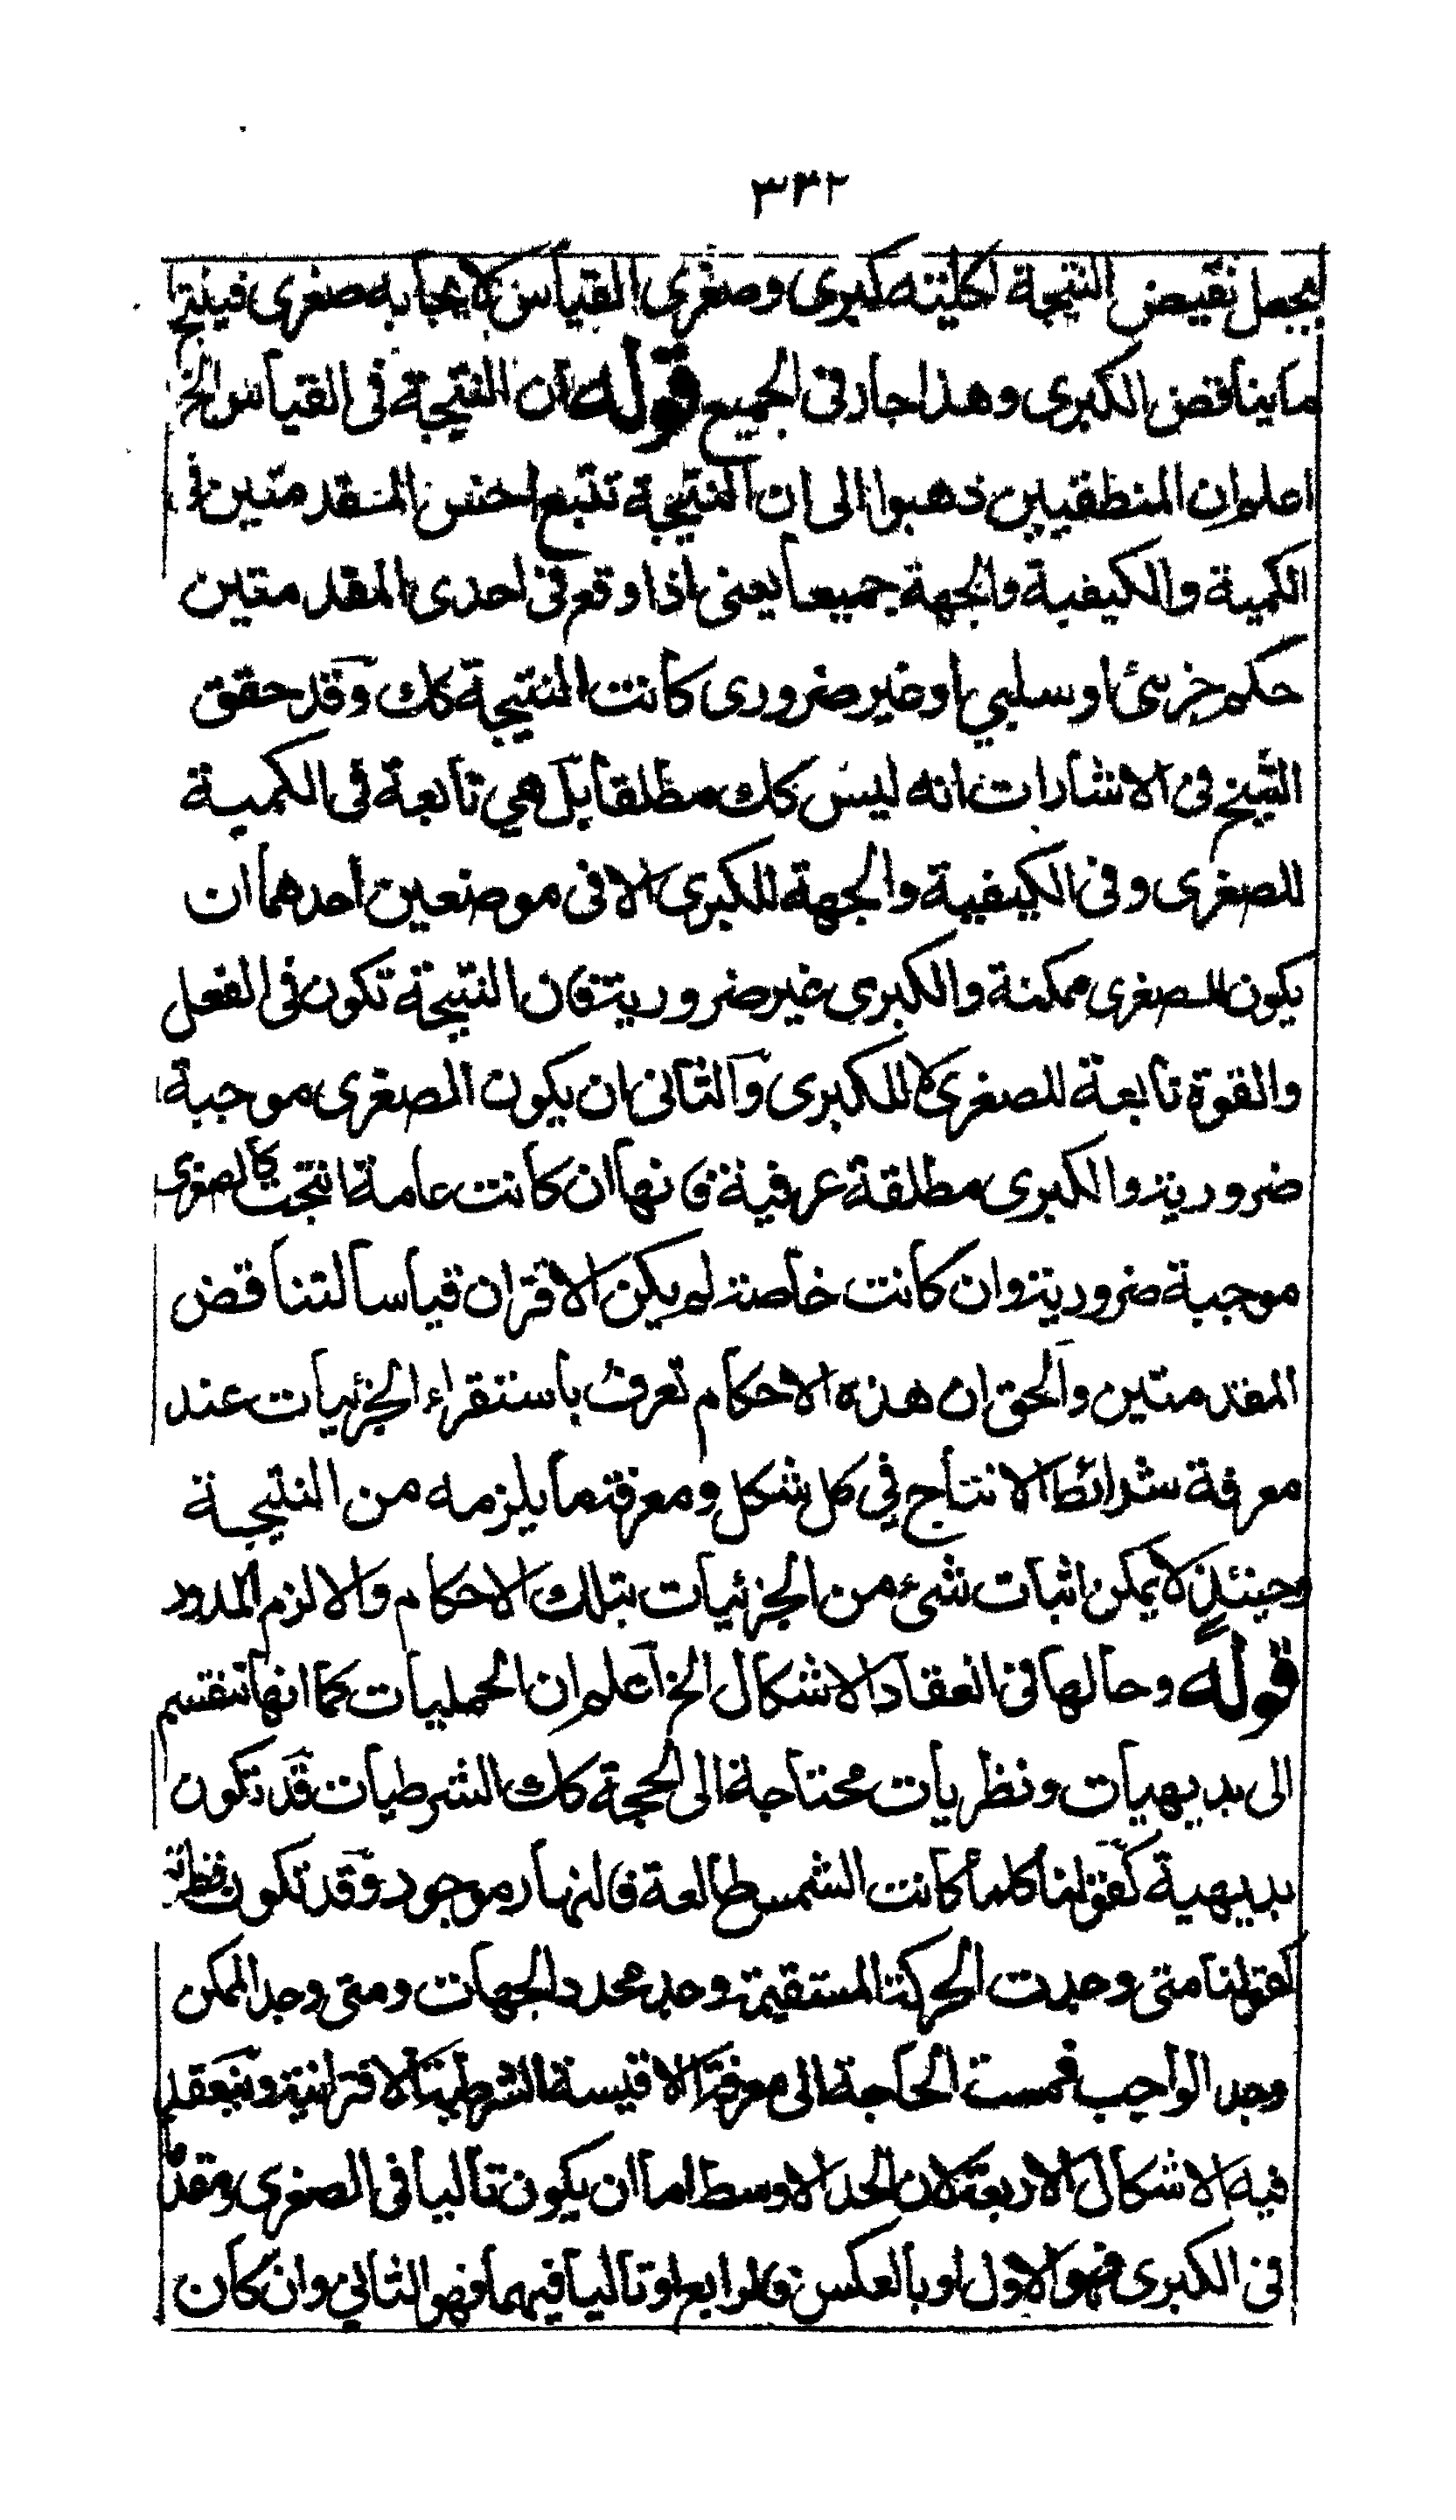 ٣٣٢
لجعل نقيض النتيجة لكليته كبرى وصغرى القياس لايجابه صغرى فينتج
ما يناقض الكبرى وهذا جار فى الجميع قوله ان النتيجة فى القياس الخ
اعلم ان المنطقيين ذهبوا الى ان النتيجة تتبع اخس المتقدمتين فى
الكمية والكيفية والجهة جميعا يعنى اذا وقع فى احدى المقدمتين
حكم جزئى او سلبي او غير ضرورى كانت النتيجة كك وقد حقق
الشيخ فى الاشارات انه ليس كك مطلقا بل هي تابعة فى الكمية
للصغرى وفى الكيفية والجهة للكبرى الا فى موضعين احدهما ان
يكون للصغرى ممكنة والكبرى غير ضرورية فان النتيجة تكون فى الفعل
والقوة تابعة للصغرى لا للكبرى والثانى ان يكون الصغرى موجبة
ضرورية والكبرى مطلقة عرفية فانها ان كانت عامة انتجت كالصغرى
موجبة ضرورية وان كانت خاصة لم يكن الاقتران قياسا لتناقض
المقدمتين والحق ان هذه الاحكام تعرف باستقراء الجزئيات عند
معرفة شرائط الانتاج في كل شكل ومعرفة ما يلزمه من النتيجة
وحينئذ لا يمكن اثبات شىء من الجزئيات بتلك الاحكام والا لزم الدور
قوله وحالها فى انعقاد الاشكال الخ اعلم ان الحمليات كما انها تنقسم
الى بديهيات ونظريات محتاجة الى الحجة كك الشرطيات قد تكون
بديهية كقولنا كلما كانت الشمس طالعة فالنهار موجود وقد تكون نظرية
كقولنا متى وجدت الحركة المستقيمة وجد محدد الجهات ومتى وجد الممكن
وجد الواجب فمست الحاجة الى معرفة الاقيسة الشرطية الاقترانية وينعقد
فيه الاشكال الاربعة لان الحد الاوسط اما ان يكون تاليا فى الصغرى ومقدما
فى الكبرى فهو الاول او بالعكس فالرابع او تاليا فيهما فهو الثاني وان كان